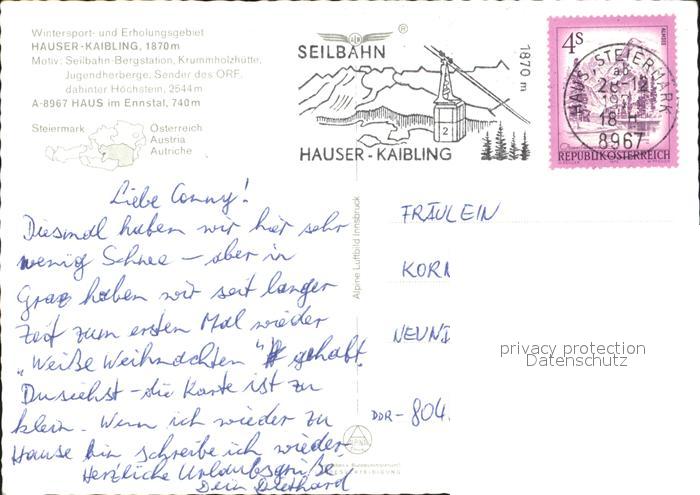 Wintersport- und Erholungsgebiet
HAUSER-KAIBLING, 1870 m
Motiv: Seilbahn-Bergstation, Krummholzhütte,
Jugendherberge, Sender des ORF,
dahinter Höchstein, 2544 m
A-8967 HAUS im Ennstal, 740 m
Steiermark
Österreich
Austria
Autriche
SEILBAHN
®
1870 m
2
HAUSER-KAIBLING
4S
ALMSEE
HAUS, STEIERMARK
28-12
18-H
8967
REPUBLIK ÖSTERREICH
Liebe Conny!
Diesmal haben wir hier sehr
wenig Schnee – aber in
Graz haben wir seit langer
Zeit zum ersten Mal wieder
„Weiße Weihnachten" gehabt.
Du siehst – die Karte ist zu
klein. Wenn ich wieder zu
Hause bin schreibe ich wieder
Herzliche Urlaubsgrüße
Dein Diethard
Alpine Luftbild Innsbruck
FRÄULEIN
KORN
NEUN
DDR-804
privacy protection
Datenschutz